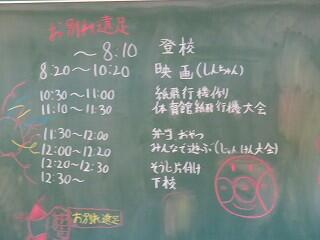 お別れ遠足
～8:10 登校
8:20～10:20 映画(しんちゃん)
10:30～11:00 紙飛行機作り
11:10～11:30 体育館紙飛行機大会
11:30～12:00 弁当 おやつ
12:00～12:20 みんなで遊ぶ(じゃんけん大会)
12:20～12:30 そうじ片付け
12:30～ 下校
お別れ遠足